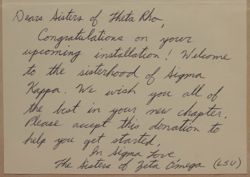 Dear Sisters of Theta Rho,
Congratulations on your
upcoming installation! Welcome
to the sisterhood of Sigma
Kappa. We wish you all of
the best in your new chapter.
Please accept this donation to
help you get started.
In Sigma Love
The Sisters of Zeta Omega (LSU)